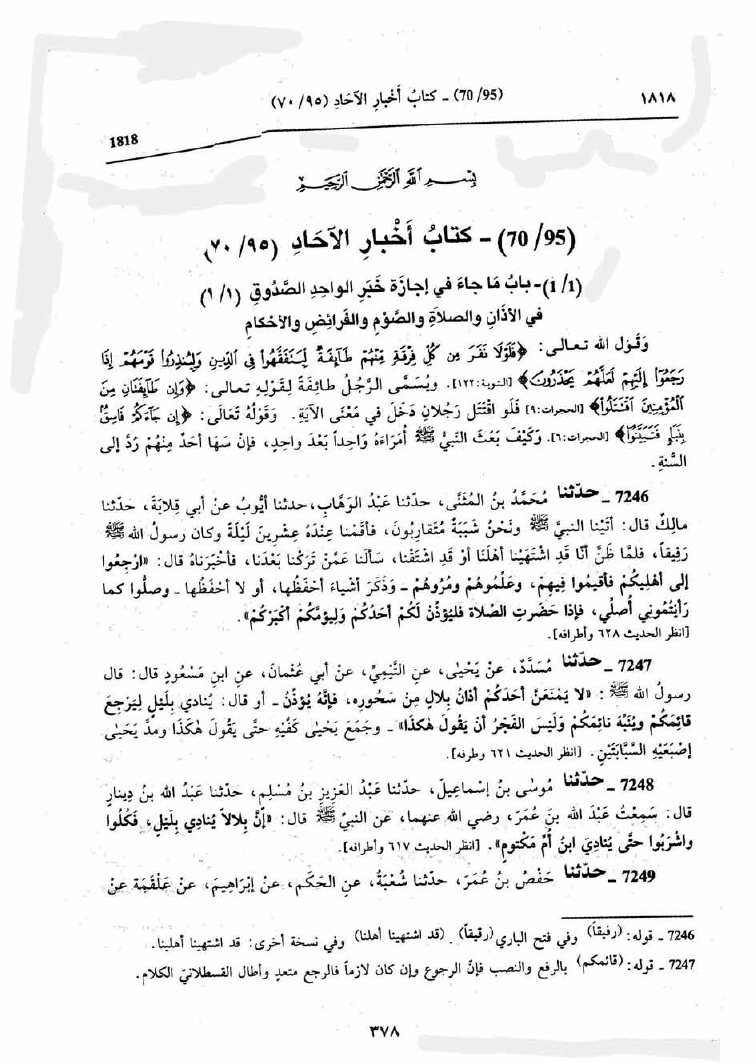 ١٨١٨ (70/95) - كتابُ أَخْبارِ الآحَادِ (٧٠/٩٥)
1818
بِسْمِ اللَّهِ الرَّحْمَٰنِ الرَّحِيمِ
(70/95) - كتابُ أَخْبارِ الآحَادِ (٧٠/٩٥)
(1/1) - بابُ مَا جاءَ في إجازَة خَبَرِ الواحِدِ الصَّدُوقِ (١/١)
في الأذَانِ والصلاَةِ والصَّوْمِ والفَرائِضِ والأحْكامِ
وَقَوْلِ الله تـعـالـى: ﴿فَلَوْلَا نَفَرَ مِن كُلِّ فِرْقَةٍ مِّنْهُمْ طَآئِفَةٌ لِّيَتَفَقَّهُوا۟ فِى ٱلدِّينِ وَلِيُنذِرُوا۟ قَوْمَهُمْ إِذَا
رَجَعُوٓا۟ إِلَيْهِمْ لَعَلَّهُمْ يَحْذَرُونَ﴾ [التوبة: ١٢٢]. ويُسَمَّى الرَّجُلُ طائِفَةً لِقَوْلِهِ تعالى: ﴿وَإِن طَآئِفَتَانِ مِنَ
ٱلْمُؤْمِنِينَ ٱقْتَتَلُوا۟﴾ [الحجرات: ٩] فَلَوِ اقْتَتَلَ رَجُلانِ دَخَلَ في مَعْنَى الآيَةِ. وقَوْلُهُ تَعَالَى: ﴿إِن جَآءَكُمْ فَاسِقٌۢ
بِنَبَإٍ فَتَبَيَّنُوٓا۟﴾ [الحجرات: ٦]. وَكَيْفَ بَعَثَ النبيُّ ﷺ أُمَرَاءَهُ واحِداً بَعْدَ واحِدٍ، فإنْ سَهَا أحَدٌ مِنْهُمْ رُدَّ إلى
السُّنةِ.
7246 - حدّثنا مُحَمَّدُ بنُ المُثَنَّى، حدّثنا عَبْدُ الوَهَّابِ، حدثنا أيُّوبُ عنْ أبي قِلابَةَ، حَدّثنا
مالِكٌ قال: أتَيْنا النبيَّ ﷺ ونَحْنُ شَبَبَةٌ مُتَقارِبُونَ، فأقَمْنا عِنْدَهُ عِشْرِينَ لَيْلَةً وكان رسولُ الله ﷺ
رَفِيقاً، فلمَّا ظَنَّ أنَّا قَدِ اشْتَهَيْنا أهْلَنَا أوْ قَدِ اشْتَقْنا، سَألَنا عَمَّنْ تَرَكْنا بَعْدَنا، فأخْبَرْناهُ قال: «ارْجِعُوا
إلى أهْلِيكُمْ فأقيمُوا فِيهِمْ، وعَلِّمُوهُمْ ومُرُوهُمْ - وَذَكَرَ أشْياءَ أحْفَظُها، أو لا أحْفَظُها - وصلُّوا كما
رَأيْتُمُوني أُصَلِّي، فإذا حَضَرَتِ الصَّلاةُ فَلْيُؤَذِّنْ لَكُمْ أحَدُكُمْ وَلْيَؤُمَّكُمْ أكْبَرُكُمْ».
[انظر الحديث ٦٢٨ وأطرافه].
7247 - حدّثنا مُسَدَّدٌ، عنْ يَحْيَى، عنِ التَّيْمِيِّ، عنْ أبي عُثْمانَ، عنِ ابنِ مَسْعُودٍ قال: قال
رسولُ الله ﷺ: «لا يَمْنَعَنَّ أحَدَكُمْ أذانُ بِلالٍ مِنْ سَحُورِهِ، فإنَّهُ يُؤَذِّنُ - أو قال: يُنادي بِلَيْلٍ لِيَرْجِعَ
قائِمَكُمْ ويُنَبِّهَ نائِمَكُمْ وَلَيْسَ الفَجْرُ أنْ يَقُولَ هٰكَذا» - وجَمَعَ يَحْيَى كَفَّيْهِ حتَّى يَقُولَ هٰكَذا ومدَّ يَحْيَى
إصْبَعَيْهِ السَّبَّابَتَيْنِ. [انظر الحديث ٦٢١ وطرفه].
7248 - حدّثنا مُوسى بنُ إسْماعِيلَ، حدّثنا عَبْدُ العَزِيزِ بنُ مُسْلِم، حدّثنا عَبْدُ الله بنُ دِينارٍ
قال: سَمِعْتُ عَبْدَ الله بنَ عُمَرَ، رضي الله عنهما، عنِ النبيِّ ﷺ قال: «إنَّ بِلالاً يُنادِي بِلَيْلٍ، فَكُلُوا
واشْرَبُوا حتَّى يُنادِيَ ابنُ أُمِّ مَكْتومٍ». [انظر الحديث ٦١٧ وأطرافه].
7249 - حدّثنا حَفْصُ بنُ عُمَرَ، حدّثنا شُعْبَةُ، عنِ الحَكَمِ، عنْ إبْرَاهِيمَ، عنْ عَلْقَمَةَ عنْ
7246 - قوله: (رفيقاً) وفي فتح الباري (رقيقاً). (قد اشتهينا أهلنا) وفي نسخة أخرى: قد اشتهينا أهلينا.
7247 - قوله: (قائمكم) بالرفع والنصب فإنّ الرجوع وإن كان لازماً فالرجع متعدٍ وأطال القسطلانيّ الكلام.
٣٧٨